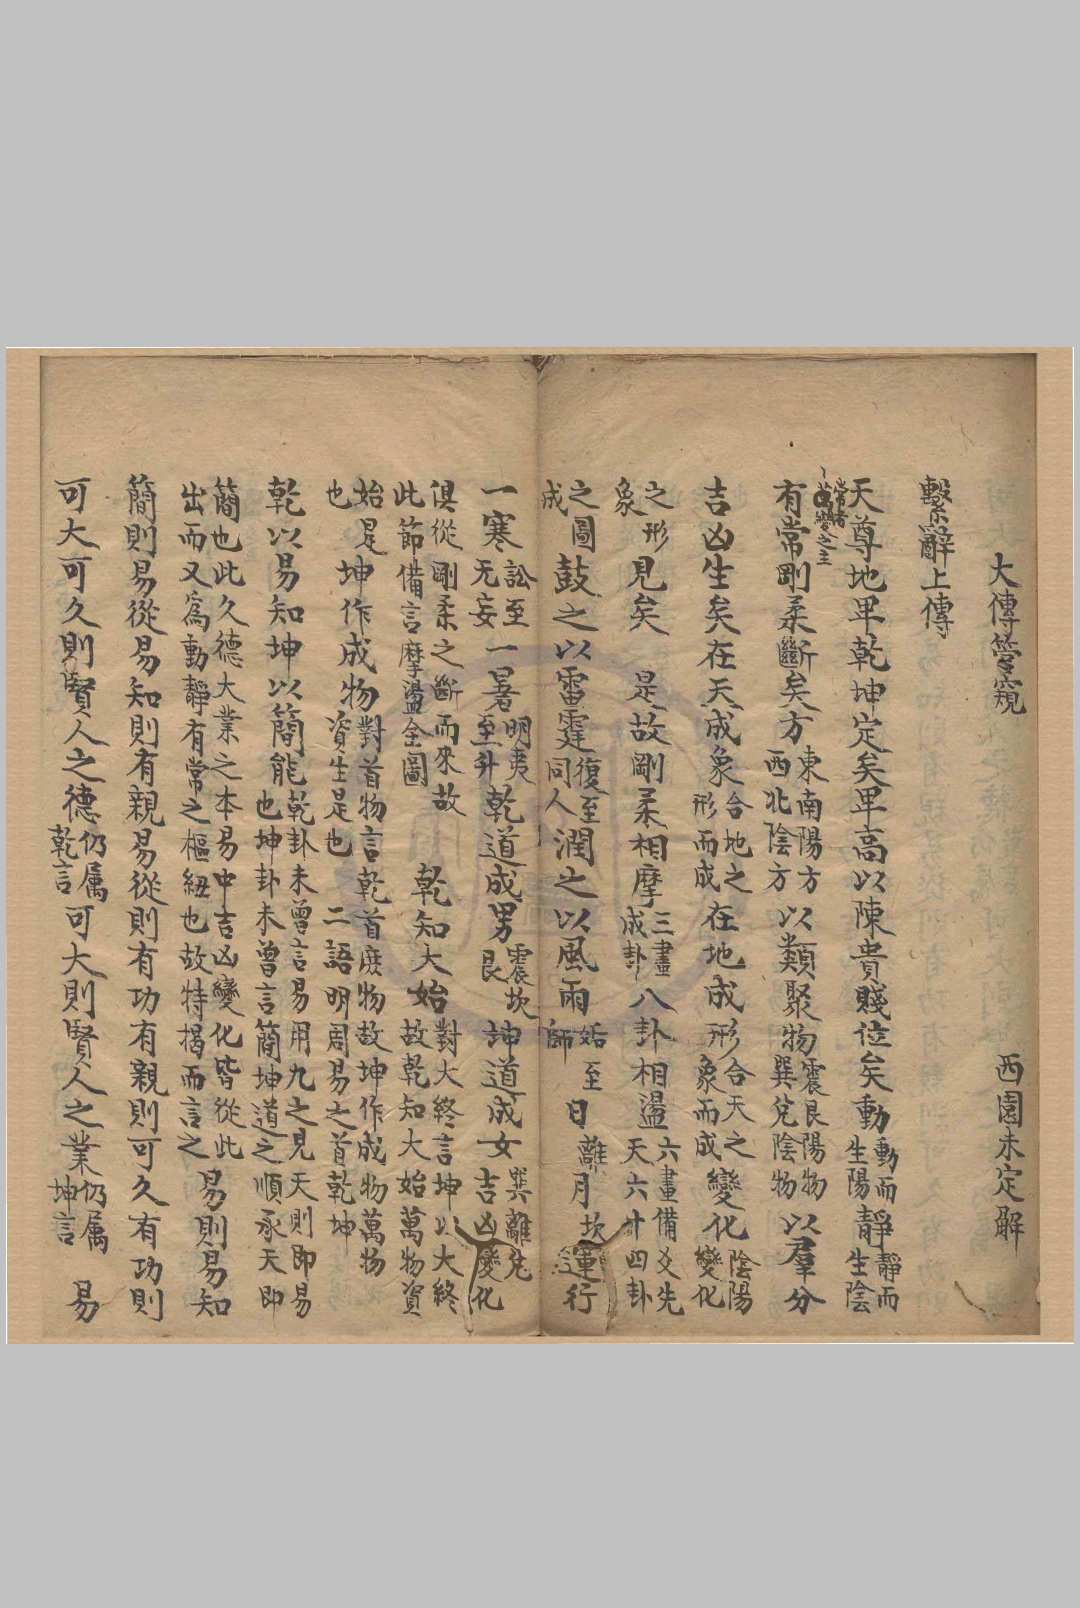 大傳管窺　西園未定解
繫辭上傳
天尊地卑乾坤定矣卑高以陳貴賤位矣動動而生陽靜靜而生陰
常者萬變之主
有常剛柔斷矣方東南陽方西北陰方以類聚物震艮陽物巽兌陰物以羣分
吉凶生矣在天成象合地之形而成在地成形合天之象而成變化陰陽變化
之形象見矣　是故剛柔相摩三畫成卦八卦相盪六畫備爻先天六十四卦
之圖成鼓之以雷霆復至同人潤之以風雨姤至師日離月坎運行
一寒訟至无妄一暑明夷至升乾道成男震坎艮坤道成女巽離兌吉凶變化
俱從剛柔之斷而來故此節備言摩盪全圖　乾知大始對大終言坤以大終故乾知大始萬物資
始是也坤作成物對首物言乾首庶物故坤作成物萬物資生是也　二語明周易之首乾坤
乾以易知坤以簡能乾卦未曾言易用九之見天則即易也坤卦未曾言簡坤道之順承天即
簡也此久德大業之本易中吉凶變化皆從此出而又爲動靜有常之樞紐也故特揭而言之易則易知
簡則易從易知則有親易從則有功有親則可久有功則
可大可久則賢人之德仍属乾言可大則賢人之業仍属坤言　易